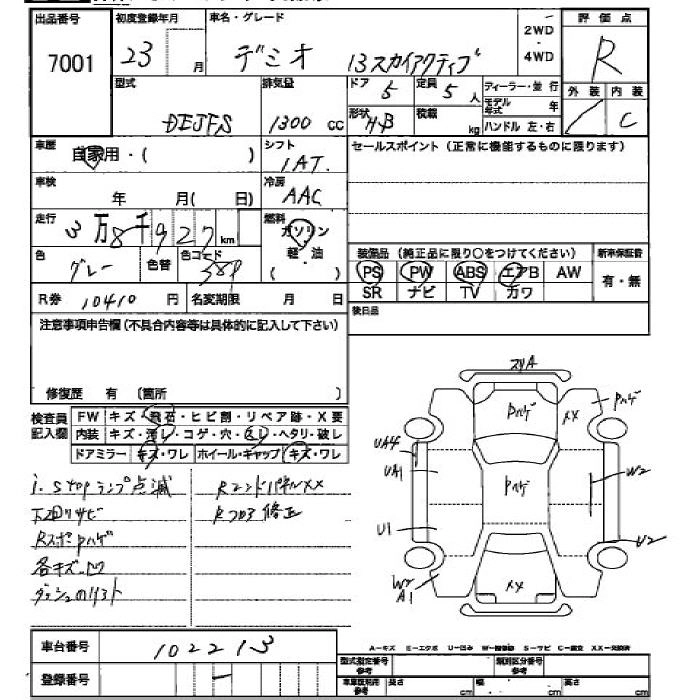 出品番号 初度登録年月 車名・グレード 評価点
7001 23 月 デミオ 13スカイアクティブ 2WD ・ 4WD R
型式 排気量 ドア 5 定員 5 人 ディーラー・並 行 外装 内装
DEJFS 1300 cc 形状 HB 積載 kg モデル年式 年 C
ハンドル 左・右
車歴 自家用・( ) シフト 1AT. セールスポイント (正常に機能するものに限ります)
車検 年 月( 日) 冷房 AAC
走行 3万8千927km 燃料 ガソリン
軽・油
( )
色 グレー 色替 色コード 装備品 (純正品に限り○をつけてください) 新車保証書
PS PW ABS エアB AW 有・無
SR ナビ TV カワ
R券 10410 円 名変期限 月 日 後日品
注意事項申告欄 (不具合内容等は具体的に記入して下さい)
修復歴 有 (箇所 )
検査員記入欄 FW キズ・飛石・ヒビ割・リペア跡・X要
内装 キズ・汚レ・コゲ・穴・スレ・ヘタリ・破レ
ドアミラー キズ・ワレ ホイール・キャップ キズ・ワレ
i. Stopランプ点滅 RエンドパネルXX
下回リサビ Rフロア修正
RスポPハゲ
各キズ.凹
スリA
Pハゲ XX Pハゲ
UA4
UA1 Pハゲ W2
U1 U2
W2
A1 XX
車台番号 102213
登録番号 ー
A－キズ E－エクボ U－凹み W－補修跡 S－サビ C－腐食 XX－交換済
型式指定番号 参考 類別区分番号 参考
車庫証明用 参考 長さ cm 幅 cm 高さ cm